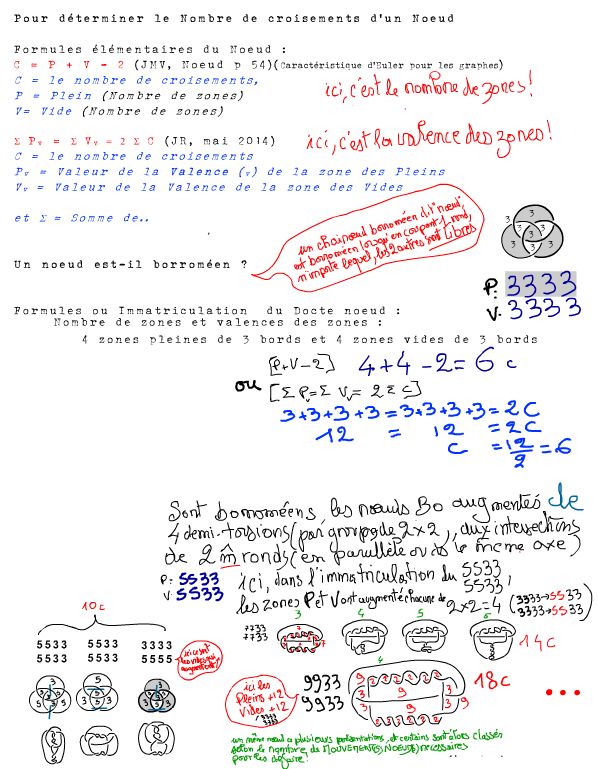 Pour déterminer le Nombre de croisements d'un Noeud
Formules élémentaires du Noeud :
C = P + V - 2 (JMV, Noeud p 54)(Caractéristique d'Euler pour les graphes)
C = le nombre de croisements,
P = Plein (Nombre de zones)
V= Vide (Nombre de zones)
ici, c'est le nombre de zones!
Σ Pᵥ = Σ Vᵥ = 2 Σ C (JR, mai 2014)
ici, c'est la valence des zones!
C = le nombre de croisements
Pᵥ = Valeur de la Valence (ᵥ) de la zone des Pleins
Vᵥ = Valeur de la Valence de la zone des Vides
et Σ = Somme de..
un chainoeud borroméen dit "noeud"
est borroméen lorsqu'en coupant 1 rond,
n'importe lequel, les 2 autres sont libres
Un noeud est-il borroméen ?
3 3 3 3 3 3 3
P: 3333
V. 3333
Formules ou Immatriculation du Docte noeud :
Nombre de zones et valences des zones :
4 zones pleines de 3 bords et 4 zones vides de 3 bords
[P+V-2] 4+4-2=6 c
ou
[Σ Pᵥ=Σ Vᵥ= 2 Σ C]
3+3+3+3=3+3+3+3=2C
12 = 12 = 2C
C = 12/2 = 6
Sont borroméens les noeuds Bo augmentés de
4 demi-torsions (par groupe de 2x2), aux intersections
de 2 m̂ ronds (en parallèle ou sur le même axe)
P: 5533
V: 5533
ici, dans l'immatriculation du 5533
5533,
les zones P et V ont augmenté chacune de 2x2=4 (3333→5533
3333→5533)
10c
5533 5533 3333
5533 5533 5555
ici ce sont
les vides qui
augmentent!
7733
7733
3 4 5 6
14c
ici les
Pleins +12
Vides +12
3333
3333
9933
9933
4
9 9 9 9 3 3 3
18c
...
un même noeud a plusieurs présentations, et certains sont alors classés
selon le nombre de MOUVEMENTS NOEUDS nécessaires
pour les défaire!